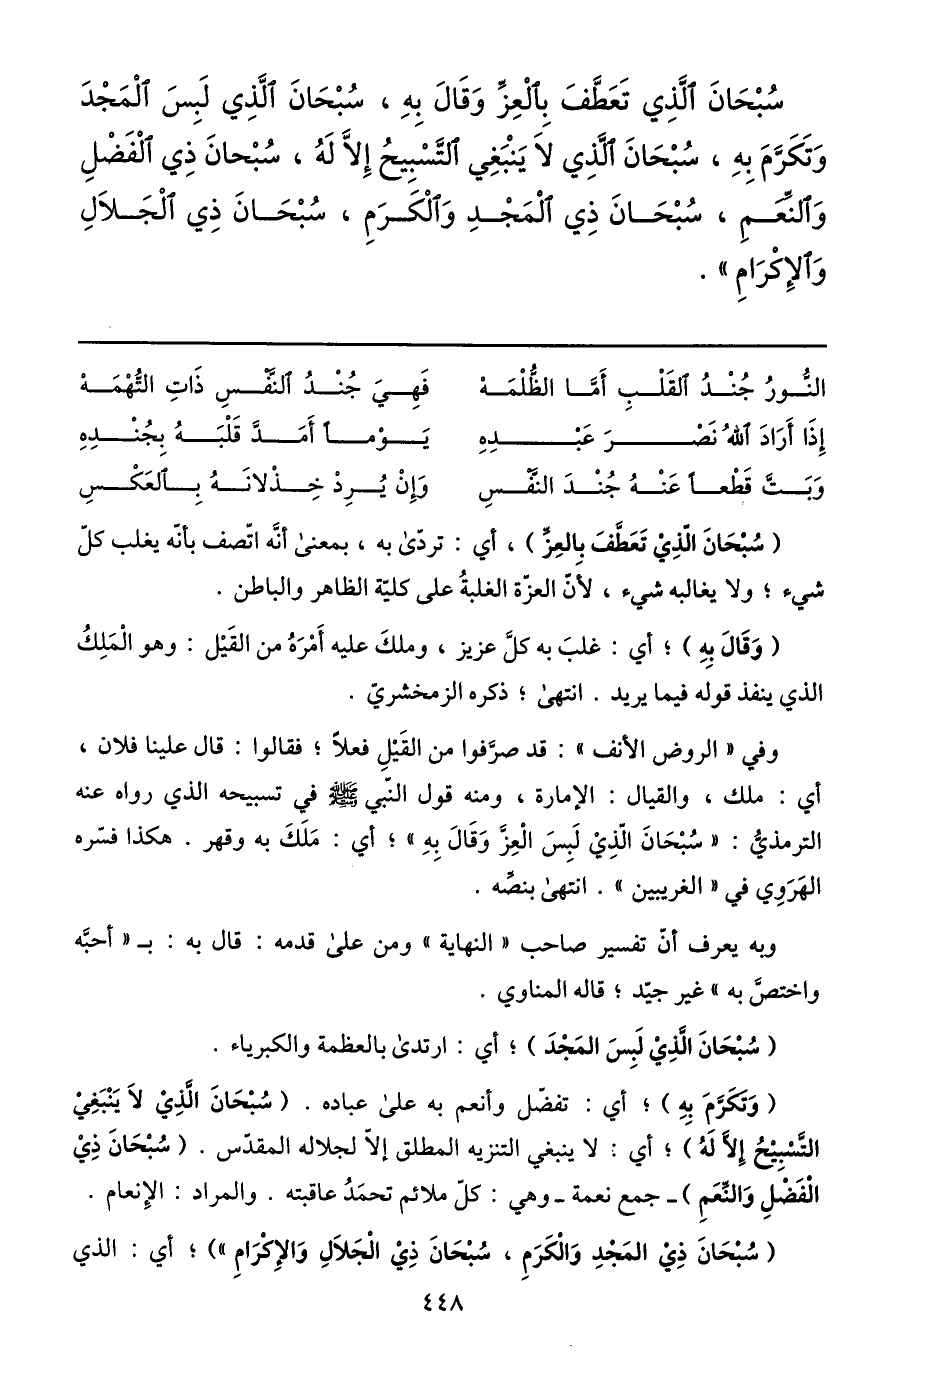 سُبْحَانَ ٱلَّذِي تَعَطَّفَ بِٱلْعِزِّ وَقَالَ بِهِ ، سُبْحَانَ ٱلَّذِي لَبِسَ ٱلْمَجْدَ
وَتَكَرَّمَ بِهِ ، سُبْحَانَ ٱلَّذِي لاَ يَنْبَغِي ٱلتَّسْبِيحُ إِلاَّ لَهُ ، سُبْحانَ ذِي ٱلْفَضْلِ
وَٱلنِّعَمِ ، سُبْحَانَ ذِي ٱلْمَجْدِ وَٱلْكَرَمِ ، سُبْحَانَ ذِي ٱلْجَلاَلِ
وَٱلإِكْرَامِ » .
النُّورُ جُنْدُ ٱلقَلْبِ أَمَّا الظُّلْمَهْ فَهِيَ جُنْدُ ٱلنَّفْسِ ذَاتِ التُّهْمَهْ
إِذَا أَرَادَ ٱللهُ نَصْرَ عَبْدِهِ يَوْماً أَمَدَّ قَلْبَهُ بِجُنْدِهِ
وَبَتَّ قَطْعاً عَنْهُ جُنْدَ النَّفْسِ وَإِنْ يُرِدْ خِذْلانَهُ بِٱلعَكْسِ
( سُبْحَانَ الَّذِيْ تَعَطَّفَ بِالعِزِّ ) ، أي : تردّىٰ به ، بمعنىٰ أنَّه اتّصف بأنّه يغلب كلّ
شيء ؛ ولا يغالبه شيء ، لأنّ العزّة الغلبةُ على كليّة الظاهر والباطن .
( وَقَالَ بِهِ ) ؛ أي : غلبَ به كلَّ عزيز ، وملكَ عليه أمْرَهُ من القَيْل : وهو الْمَلِكُ
الذي ينفذ قوله فيما يريد . انتهىٰ ؛ ذكره الزمخشريّ .
وفي « الروض الأنف » : قد صرَّفوا من القَيْلِ فعلاً ؛ فقالوا : قال علينا فلان ،
أي : ملك ، والقيال : الإمارة ، ومنه قول النّبي ﷺ في تسبيحه الذي رواه عنه
الترمذيُّ : « سُبْحَانَ الَّذِيْ لَبِسَ الْعِزَّ وَقَالَ بِهِ » ؛ أي : مَلَكَ به وقهر . هكذا فسّره
الهَرَوِي في « الغريبين » . انتهىٰ بنصِّه .
وبه يعرف أنّ تفسير صاحب « النهاية » ومن علىٰ قدمه : قال به : بـ « أحبَّه
واختصَّ به » غير جيّد ؛ قاله المناوي .
( سُبْحَانَ الَّذِيْ لَبِسَ المَجْدَ ) ؛ أي : ارتدىٰ بالعظمة والكبرياء .
( وَتَكَرَّمَ بِهِ ) ؛ أي : تفضّل وأنعم به علىٰ عباده . ( سُبْحَانَ الَّذِيْ لاَ يَنْبَغِيْ
التَّسْبِيْحُ إِلاَّ لَهُ ) ؛ أي : لا ينبغي التنزيه المطلق إلاّ لجلاله المقدّس . ( سُبْحَانَ ذِيْ
الْفَضْلِ وَالنِّعَمِ )ـ جمع نعمة ـ وهي : كلّ ملائم تحمَدُ عاقبته . والمراد : الإنعام .
( سُبْحَانَ ذِيْ المَجْدِ وَالْكَرَمِ ، سُبْحَانَ ذِيْ الْجَلاَلِ وَالإِكْرَامِ ») ؛ أي : الذي
٤٤٨